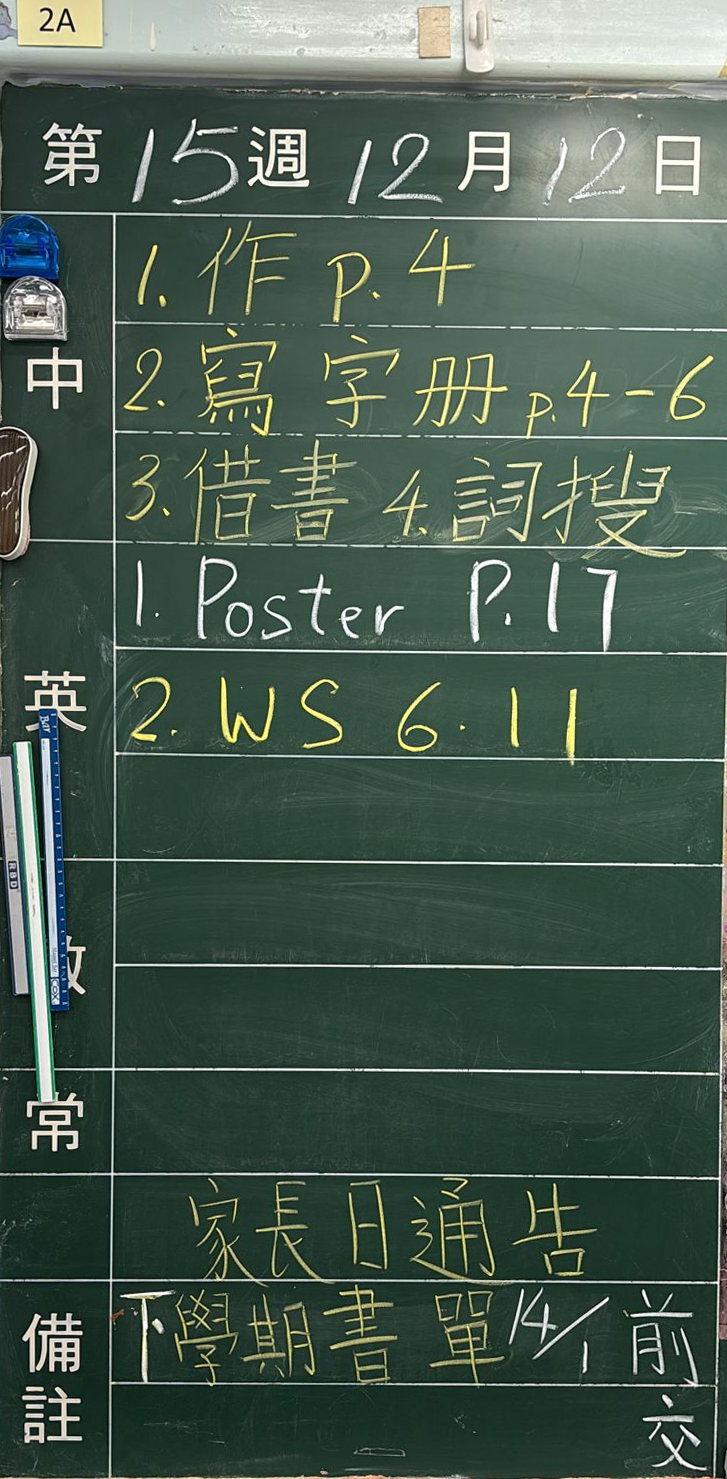 2A
第 15 週 12 月 12 日
中
1. 作 p. 4
2. 寫字册 p.4-6
3. 借書 4. 詞搜
英
1. Poster P.17
2. WS 6.11
數
常
家長日通告
備註
下學期書單 14/1 前
交